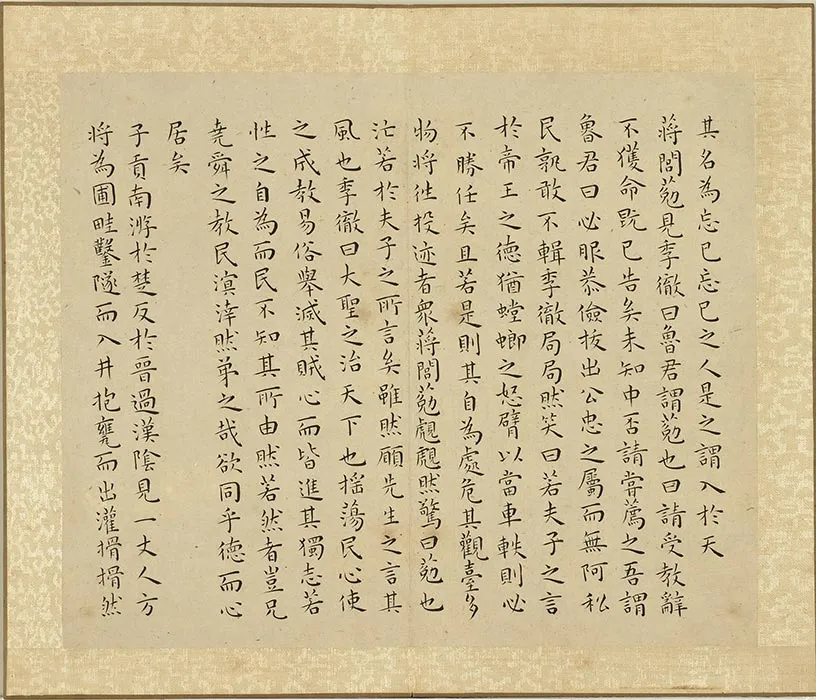 其名為忘已忘已之人是之謂入於天
蔣閭葂見季徹曰魯君謂葂也曰請受教辭
不獲命既已告矣未知中否請嘗薦之吾謂
魯君曰必服恭儉拔出公忠之屬而無阿私
民孰敢不輯季徹局局然笑曰若夫子之言
於帝王之德猶螳螂之怒臂以當車軼則必
不勝任矣且若是則其自為處危其觀臺多
物將往投迹者衆蔣閭葂覤覤然驚曰葂也
汒若於夫子之所言矣雖然願先生之言其
風也季徹曰大聖之治天下也揺蕩民心使
之成教易俗舉滅其賊心而皆進其獨志若
性之自為而民不知其所由然若然者豈兄
堯舜之教民溟涬然弟之哉欲同乎德而心
居矣
子貢南游於楚反於晉過漢陰見一丈人方
將為圃畦鑿隧而入井抱甕而出灌搰搰然